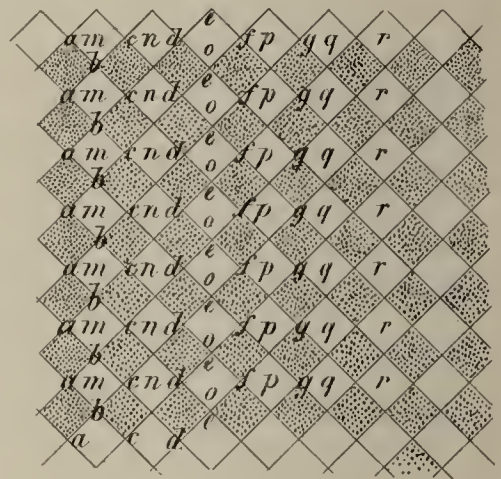 e
a m c n d o f p g q r
b e
a m c n d o f p g q r
b e
a m c n d o f p g q r
b e
a m c n d o f p g q r
b e
a m c n d o f p g q r
b e
a m c n d o f p g q r
b e
a m c n d o f p g q r
b e
a c d